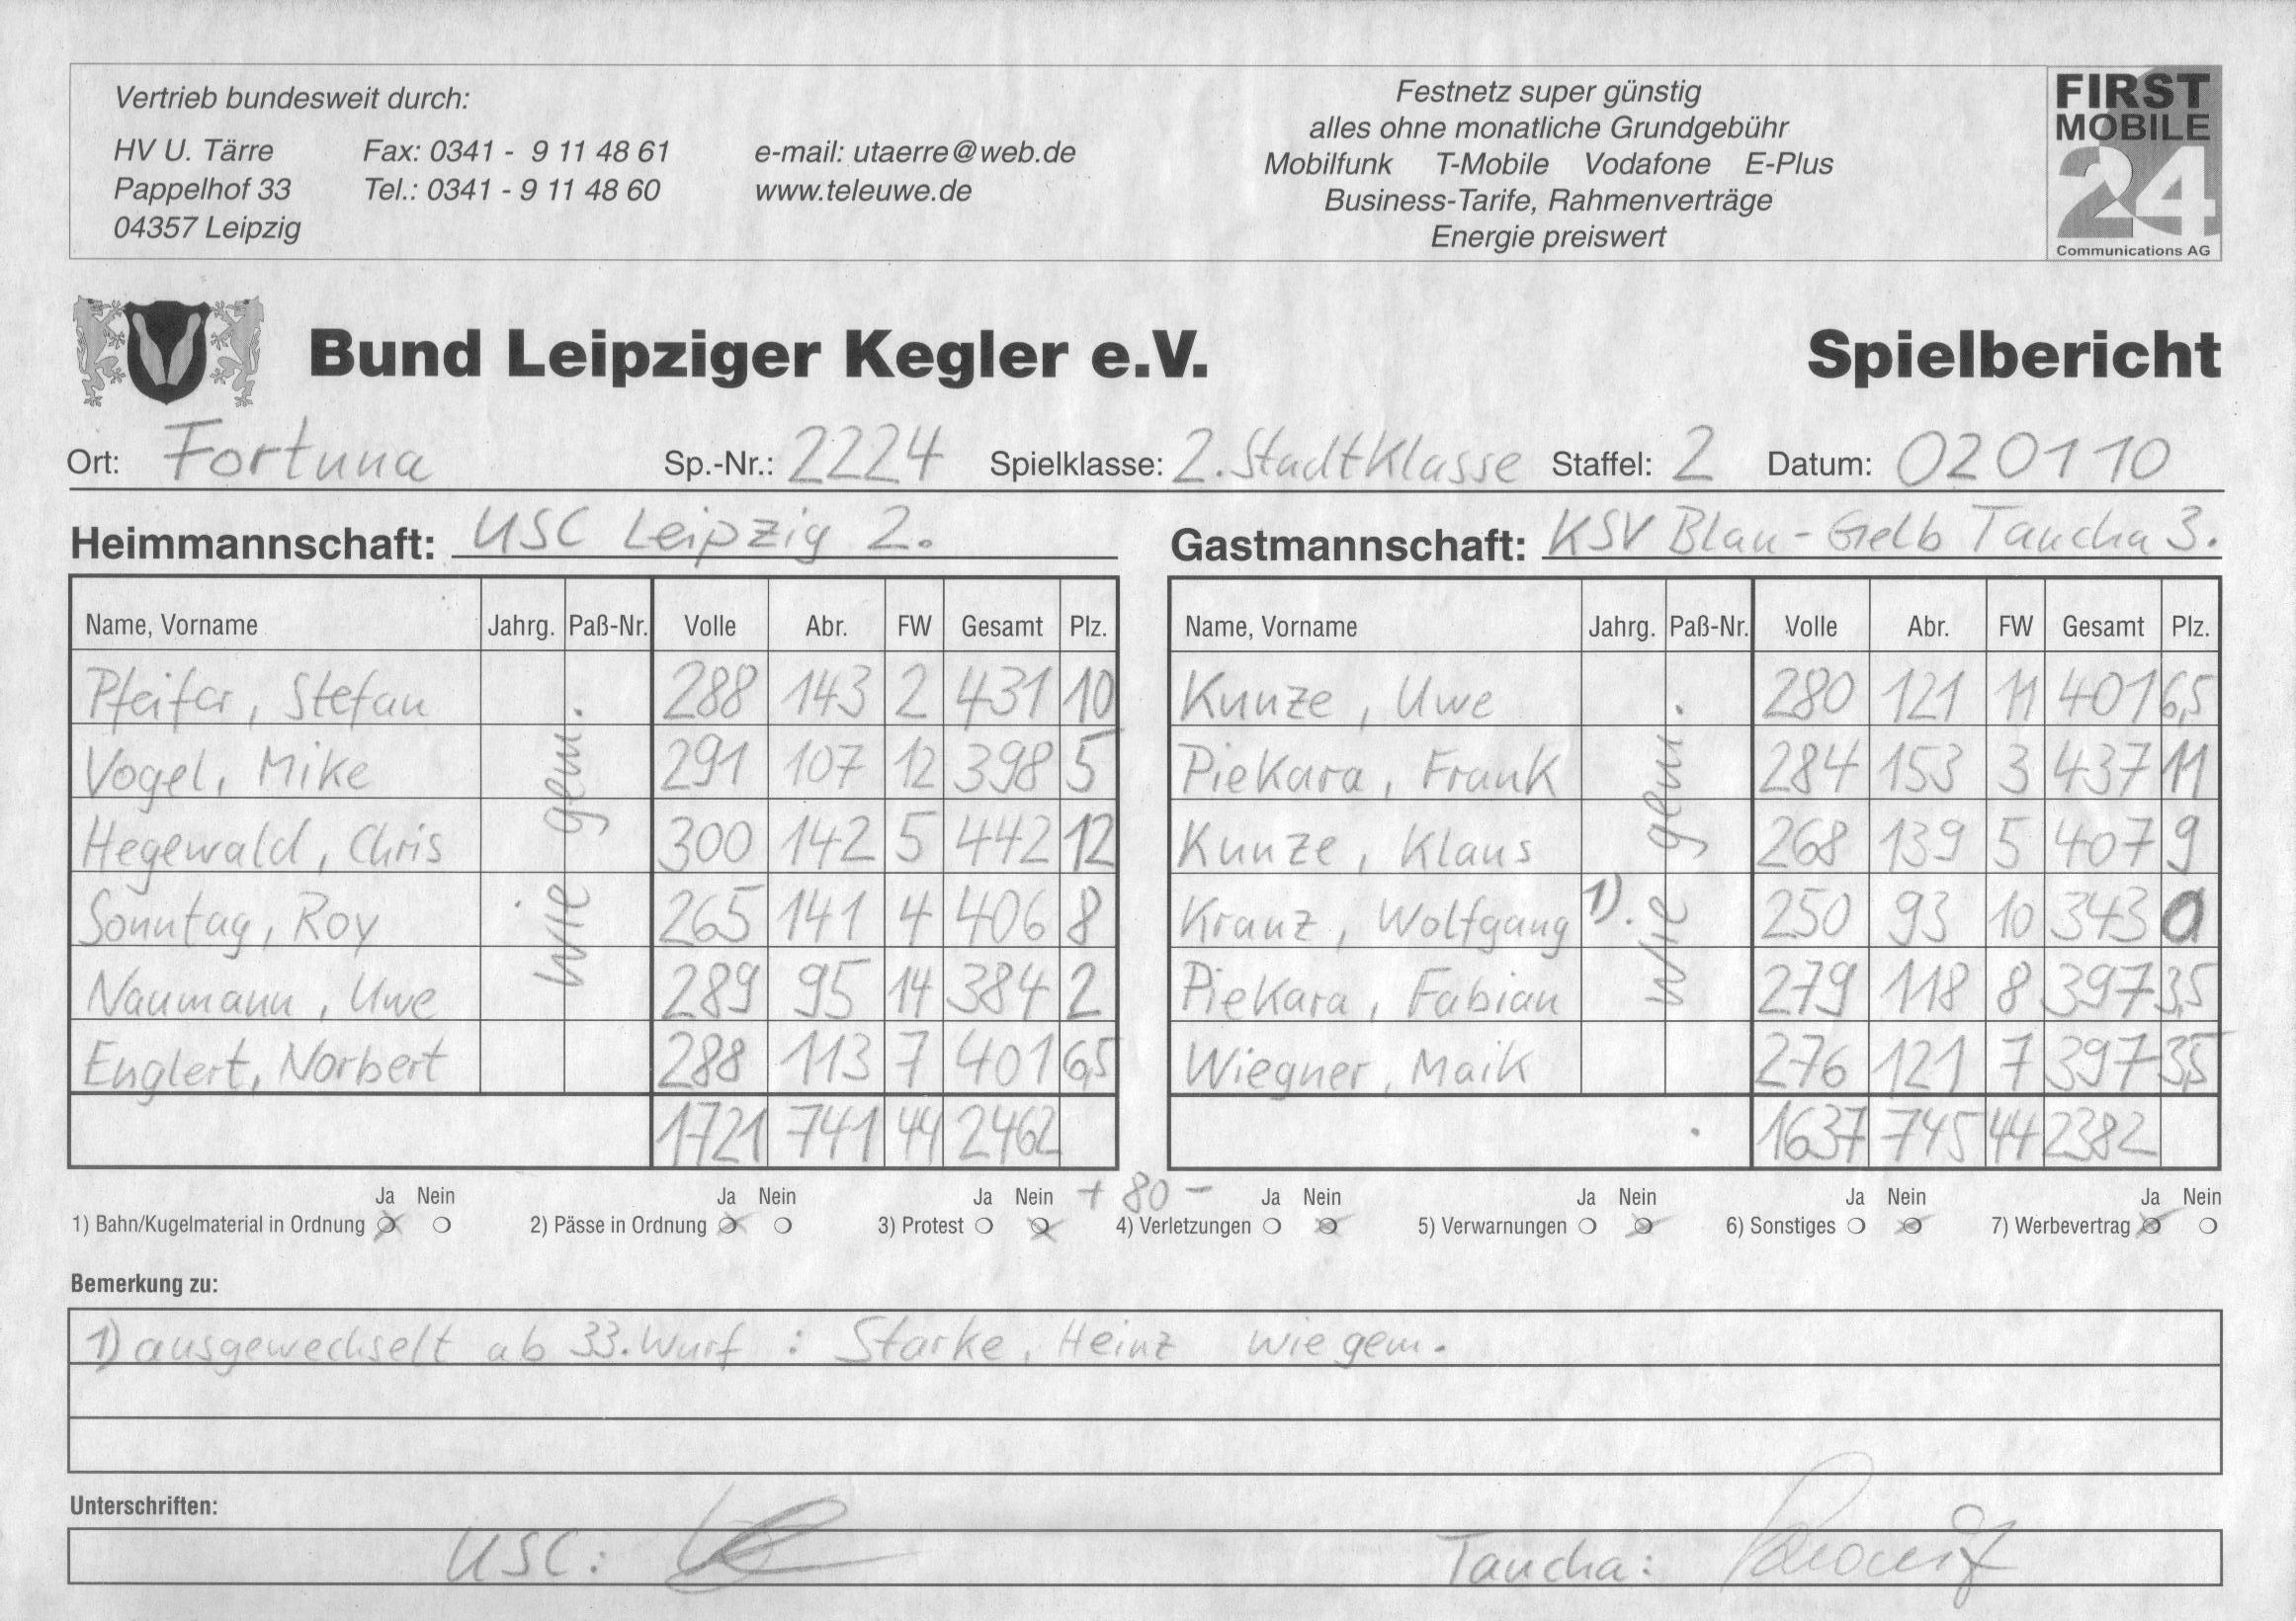 Vertrieb bundesweit durch:
HV U. Tärre Fax: 0341 - 9 11 48 61 e-mail: utaerre@web.de
Pappelhof 33 Tel.: 0341 - 9 11 48 60 www.teleuwe.de
04357 Leipzig
Festnetz super günstig
alles ohne monatliche Grundgebühr
Mobilfunk T-Mobile Vodafone E-Plus
Business-Tarife, Rahmenverträge
Energie preiswert
FIRST
MOBILE
24
Communications AG
Bund Leipziger Kegler e.V. Spielbericht
Ort: Fortuna Sp.-Nr.: 2224 Spielklasse: 2. Stadtklasse Staffel: 2 Datum: 020110
Heimmannschaft: USC Leipzig 2.
Name, Vorname Jahrg. Paß-Nr. Volle Abr. FW Gesamt Plz.
Pfeifer, Stefan 288 143 2 431 10
Vogel, Mike 291 107 12 398 5
Hegewald, Chris 300 142 5 442 12
Sonntag, Roy 265 141 4 406 8
Naumann, Uwe 289 95 14 384 2
Englert, Norbert 288 113 7 401 6,5
wie gem.
1721 741 44 2462
Gastmannschaft: KSV Blau-Gelb Taucha 3.
Name, Vorname Jahrg. Paß-Nr. Volle Abr. FW Gesamt Plz.
Kunze, Uwe 280 121 11 401 6,5
Piekara, Frank 284 153 3 437 11
Kunze, Klaus 268 139 5 407 9
Kranz, Wolfgang 1). 250 93 10 343 0
Piekara, Fabian 279 118 8 397 3,5
Wiegner, Maik 276 121 7 397 3,5
wie gem.
1637 745 44 2382
+ 80 -
Ja Nein Ja Nein Ja Nein Ja Nein Ja Nein Ja Nein Ja Nein
1) Bahn/Kugelmaterial in Ordnung 2) Pässe in Ordnung 3) Protest 4) Verletzungen 5) Verwarnungen 6) Sonstiges 7) Werbevertrag
Bemerkung zu:
1) ausgewechselt ab 33. Wurf : Starke, Heinz wie gem.
Unterschriften:
USC: Taucha: